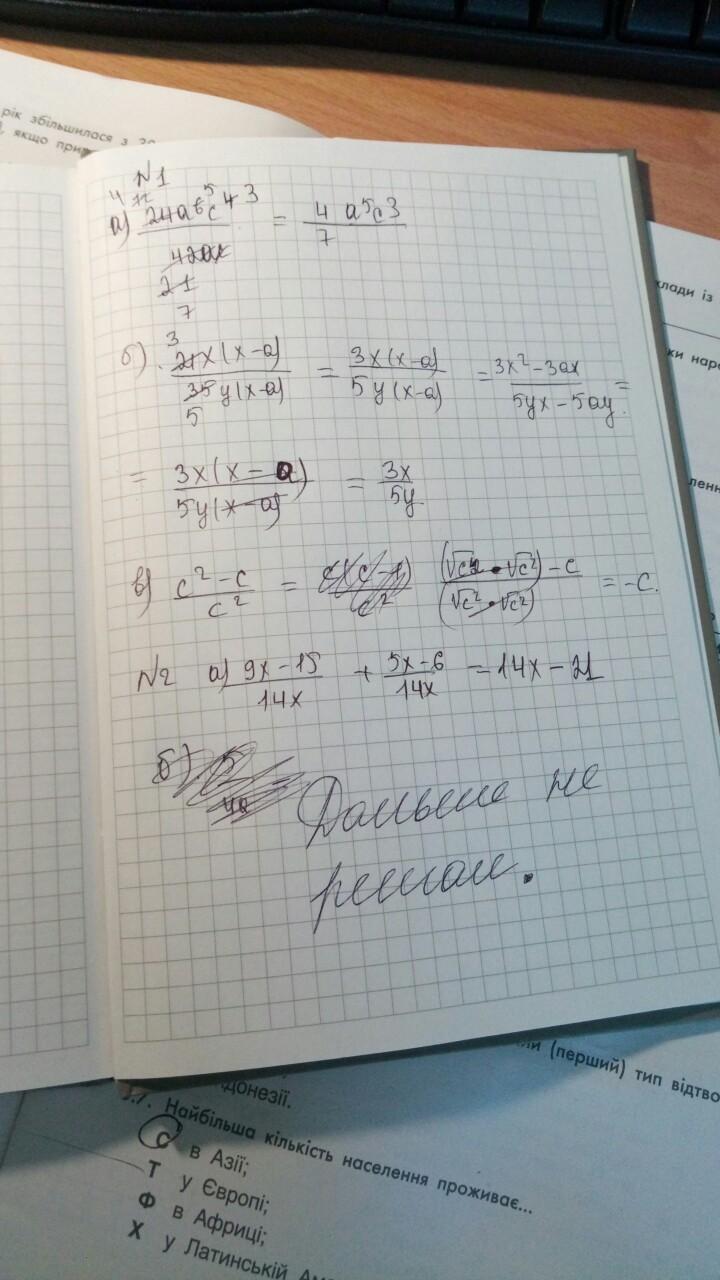 рік збільшилася з
, якщо
N1
а) 24ab⁵c⁴ 3 = 4 a⁵c3
7
21
7
б) 21x(x-a) / 35y(x-a) = 3x(x-a) / 5y(x-a) = 3x²-3ax / 5yx-5ay =
= 3x(x-a) / 5y(x-a) = 3x / 5y
в) c²-c / c² = (√c² • √c²)-c / (√c² • √c²) = -c.
N2 а) 9x-15 / 14x + 5x-6 / 14x = 14x-21
б)
Дальше не
решал.
клади із
ки
(перший) тип відтво
донезії.
Найбільша кількість населення проживає...
С в Азії;
Т у Європі;
Ф в Африці;
Х у Латинській